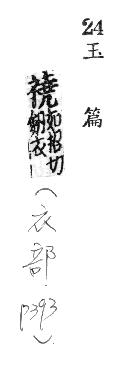 24 玉篇
襓 如招切 劒衣
(衣部 p393)